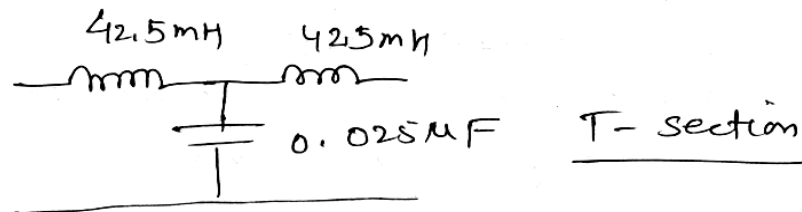 42.5mH 425mH
0.025μF T- section